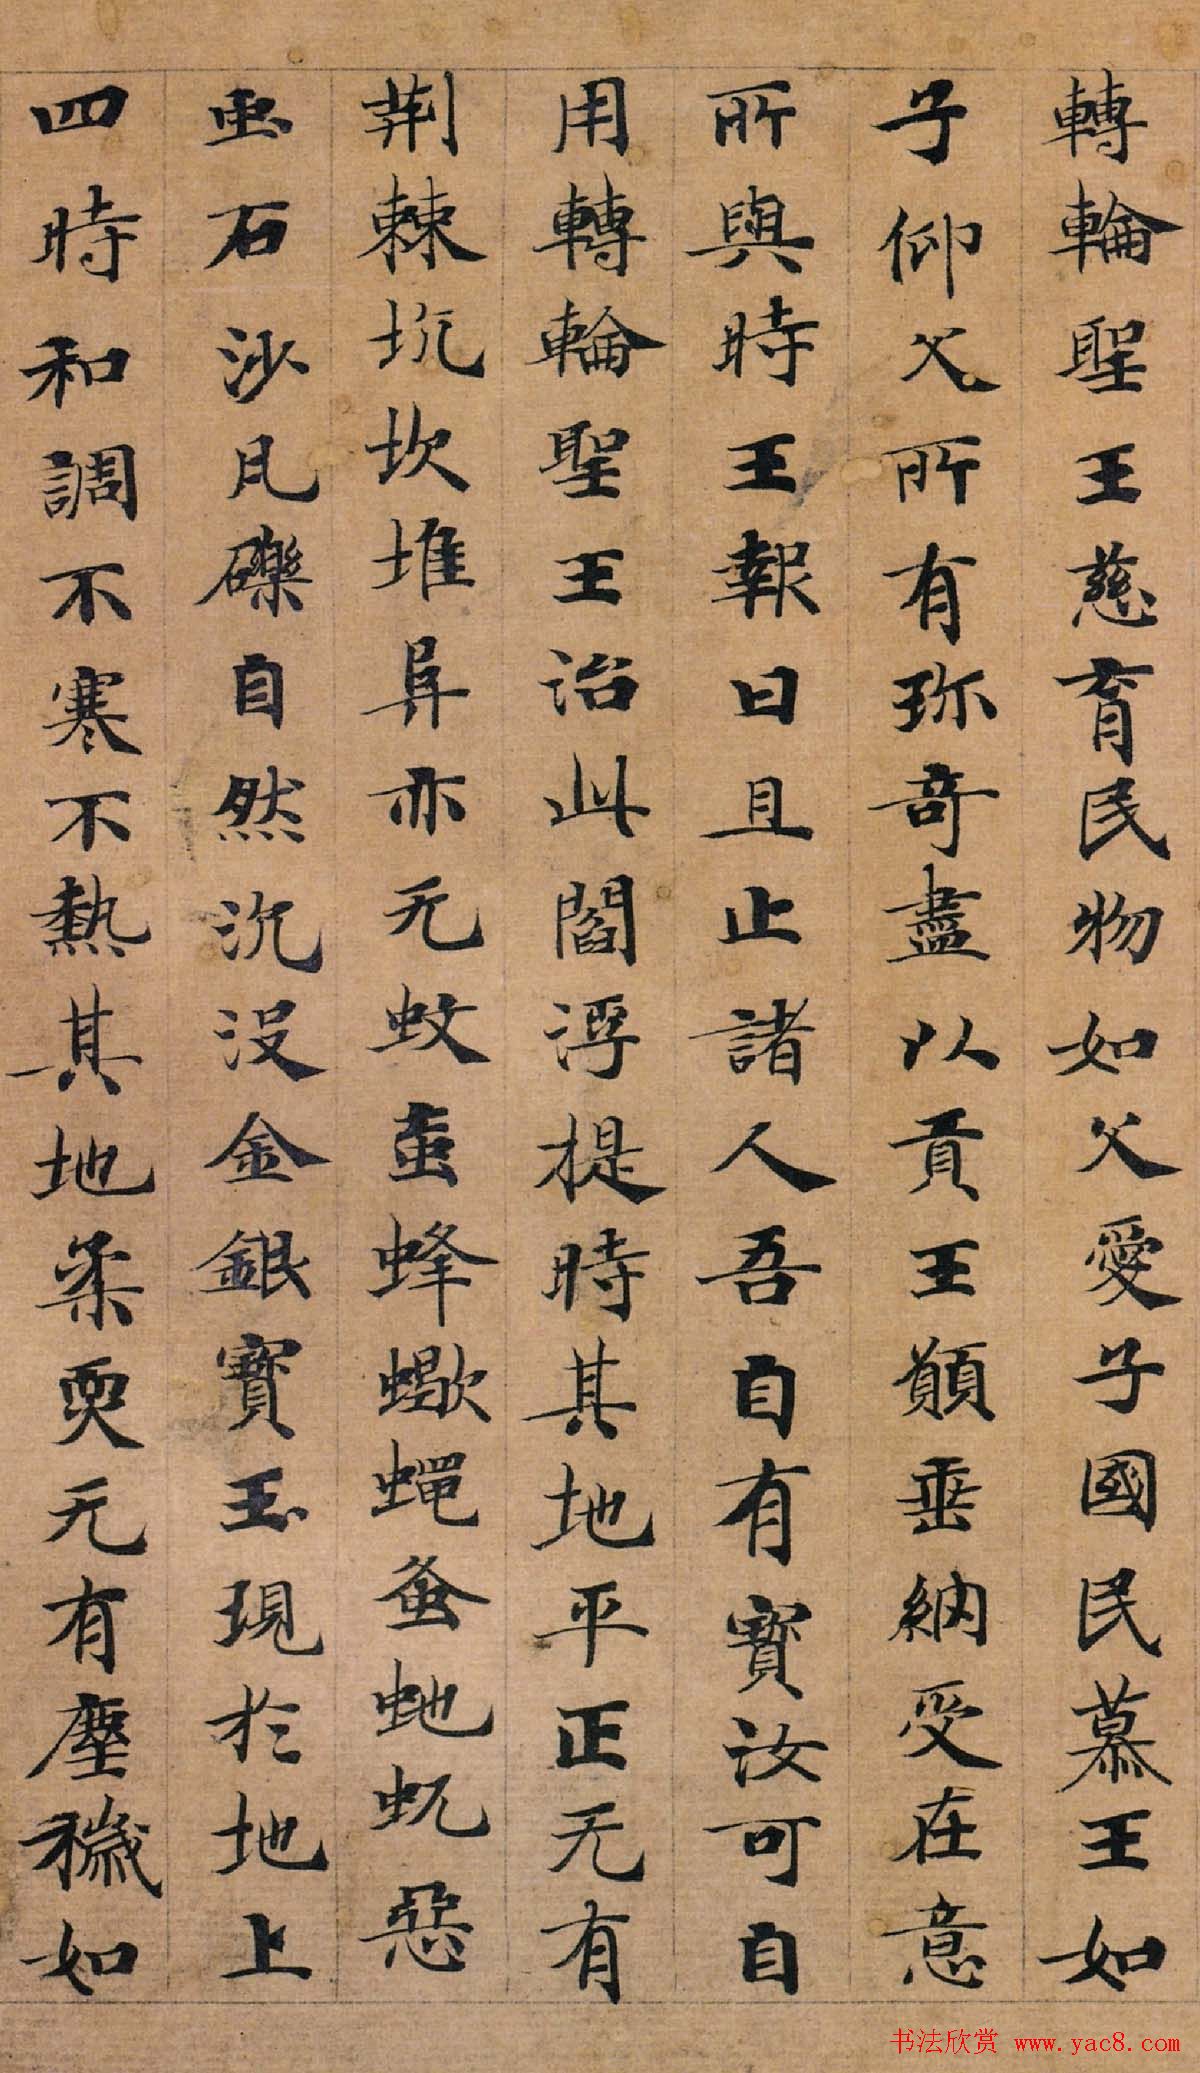 轉輪聖王慈育民物如父愛子國民慕王如
子仰父所有珎奇盡以貢王願垂納受在意
所與時王報曰且止諸人吾自有寶汝可自
用轉輪聖王治此閻浮提時其地平正无有
荆棘坑坎堆阜亦无蚊䖟蜂蠍蝿蚤虵虺惡
玉石沙凡礫自然沉沒金銀寶玉現於地上
四時和調不寒不熱其地柔耎无有塵穢如
书法欣赏 www.yac8.com